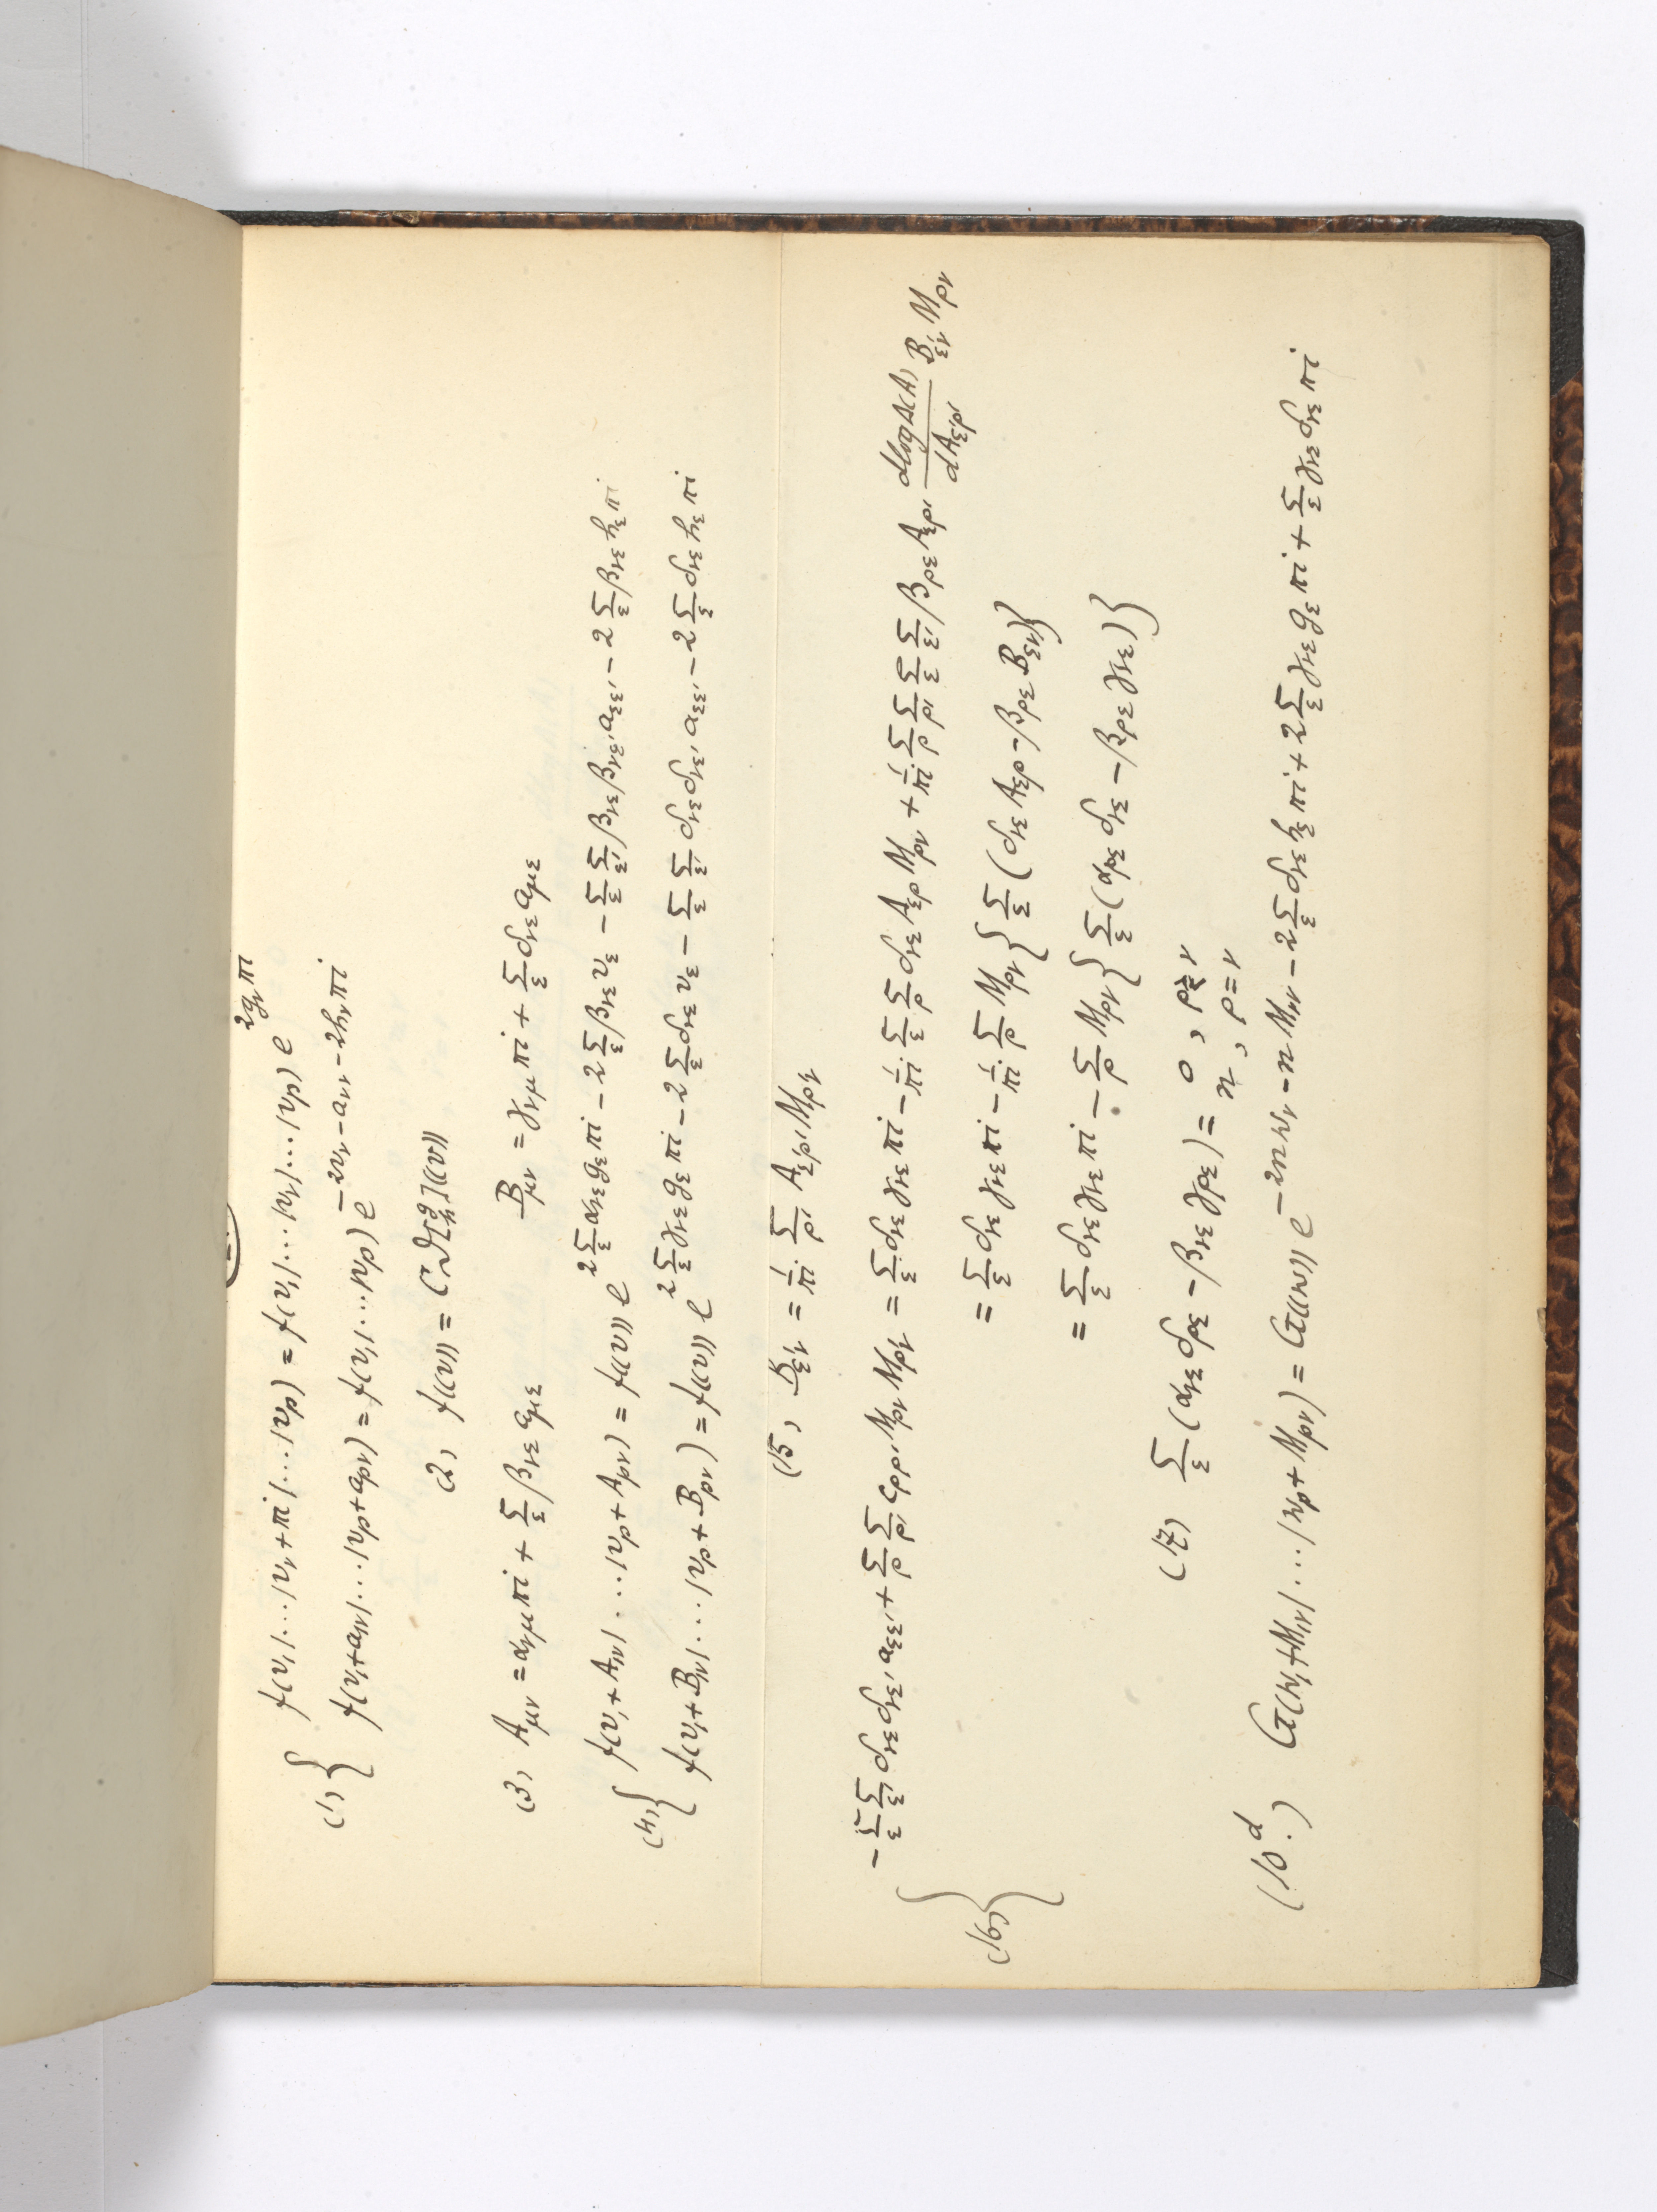 (1) { f(v₁|…|v_ν+πi|…|v_p) = f(v₁|…|v_ν|…|v_p) e^{2g_ν πi}
f(v₁+a_{1ν}|…|v_p+a_{pν}) = f(v₁|…|v_p) e^{-2v_ν-a_{νν}-2h_ν πi}
(2) f((v)) = Cϑ[g h]((v))
(3) A_{μν} = α_{νμ} πi + Σ_ε β_{νε} a_{με} B_{μν} = γ_{νμ} πi + Σ_ε δ_{νε} a_{με}
(4) { f(v₁+A_{1ν}|…|v_p+A_{pν}) = f((v)) e^{2Σ_ε α_{νε} g_ε πi - 2Σ_ε β_{νε} v_ε - Σ_ε Σ_{ε'} β_{νε} β_{νε'} a_{εε'} - 2Σ_ε β_{νε} h_ε πi}
f(v₁+B_{1ν}|…|v_p+B_{pν}) = f((v)) e^{2Σ_ε γ_{νε} g_ε πi - 2Σ_ε δ_{νε} v_ε - Σ_ε Σ_{ε'} δ_{νε} δ_{νε'} a_{εε'} - 2Σ_ε δ_{νε} h_ε πi}
(15) B_{ε'ν} = 1/πi Σ_{ρ'} A_{ε'ρ'} M_{ρ'ν}
(16) { -Σ_ε Σ_{ε'} δ_{νε} δ_{νε'} a_{εε'} + Σ_ρ Σ_{ρ'} c_{ρρ'} M_{ρν} M_{ρ'ν} = Σ_ε δ_{νε} γ_{νε} πi - 1/πi Σ_ε Σ_ρ δ_{νε} A_{ερ} M_{ρν} + 1/πi Σ_ρ Σ_{ρ'} Σ_ε Σ_{ε'} β_{ρε} A_{ερ'} dlogΔ(A)/dA_{ε'ρ'} B_{ε'ν} M_{ρν}
= Σ_ε δ_{νε} γ_{νε} πi - 1/πi Σ_ρ M_{ρν} { Σ_ε (δ_{νε} A_{ερ} - β_{ρε} B_{εν}) }
= Σ_ε δ_{νε} γ_{νε} πi - Σ_ρ M_{ρν} { Σ_ε (α_{ρε} δ_{νε} - β_{ρε} γ_{νε}) }
(17) Σ_ε (α_{νε} δ_{ρε} - β_{νε} γ_{ρε}) = 0, ρ≷ν
n, ρ=ν
(10^d.) G(w₁+M_{1ν}|…|w_p+M_{pν}) = G((w)) e^{-2n w_ν - n M_{νν} - 2Σ_ε δ_{νε} h_ε πi + 2Σ_ε γ_{νε} g_ε πi + Σ_ε γ_{νε} δ_{νε} πi}